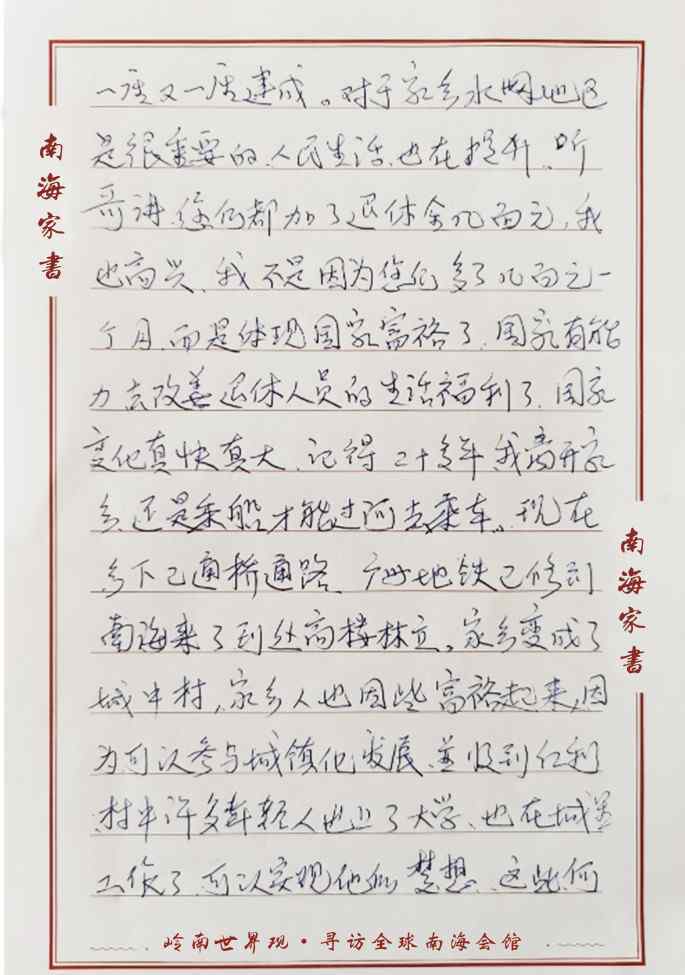 南海家書
一座又一座建成。对于家乡水网地区
是很重要的、人民生活也在提升、听
哥讲您们都加了退休金几百元，我
也高兴、我不是因为您们多了几百元一
个月、而是体现国家富裕了、国家有能
力去改善退休人员的生活福利了、国家
变化真快真大、记得二十多年我离开家
乡、还是乘船才能过河去乘车。现在
乡下已通桥通路、广州地铁已修到
南海来了到处高楼林立。家乡变成了
城中村，家乡人也因些富裕起来，因
为可以参与城镇化发展、并收到红利
村中许多年轻人也上了大学、也在城里
工作了、可以实现他们梦想、这些何
南海家書
岭南世界观·寻访全球南海会馆